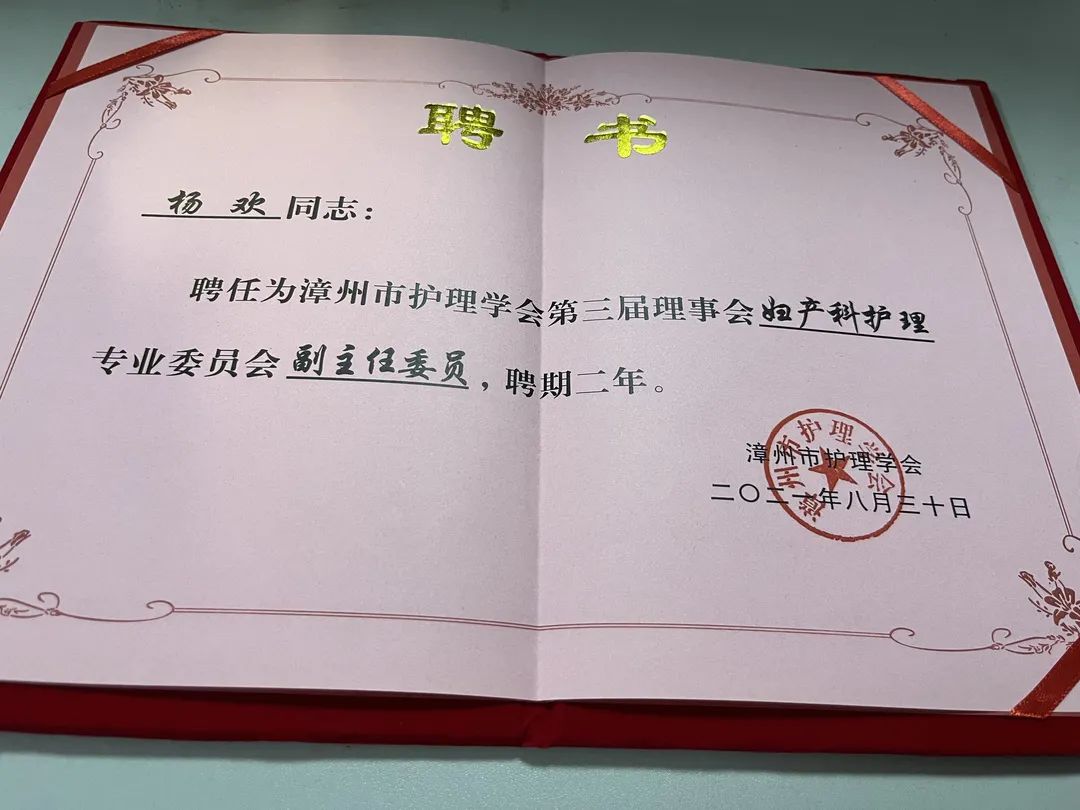 聘 书
杨 欢 同志：
聘任为漳州市护理学会第三届理事会妇产科护理
专业委员会副主任委员，聘期二年。
漳州市护理学会
漳州市护理学会
二〇二一年八月三十日